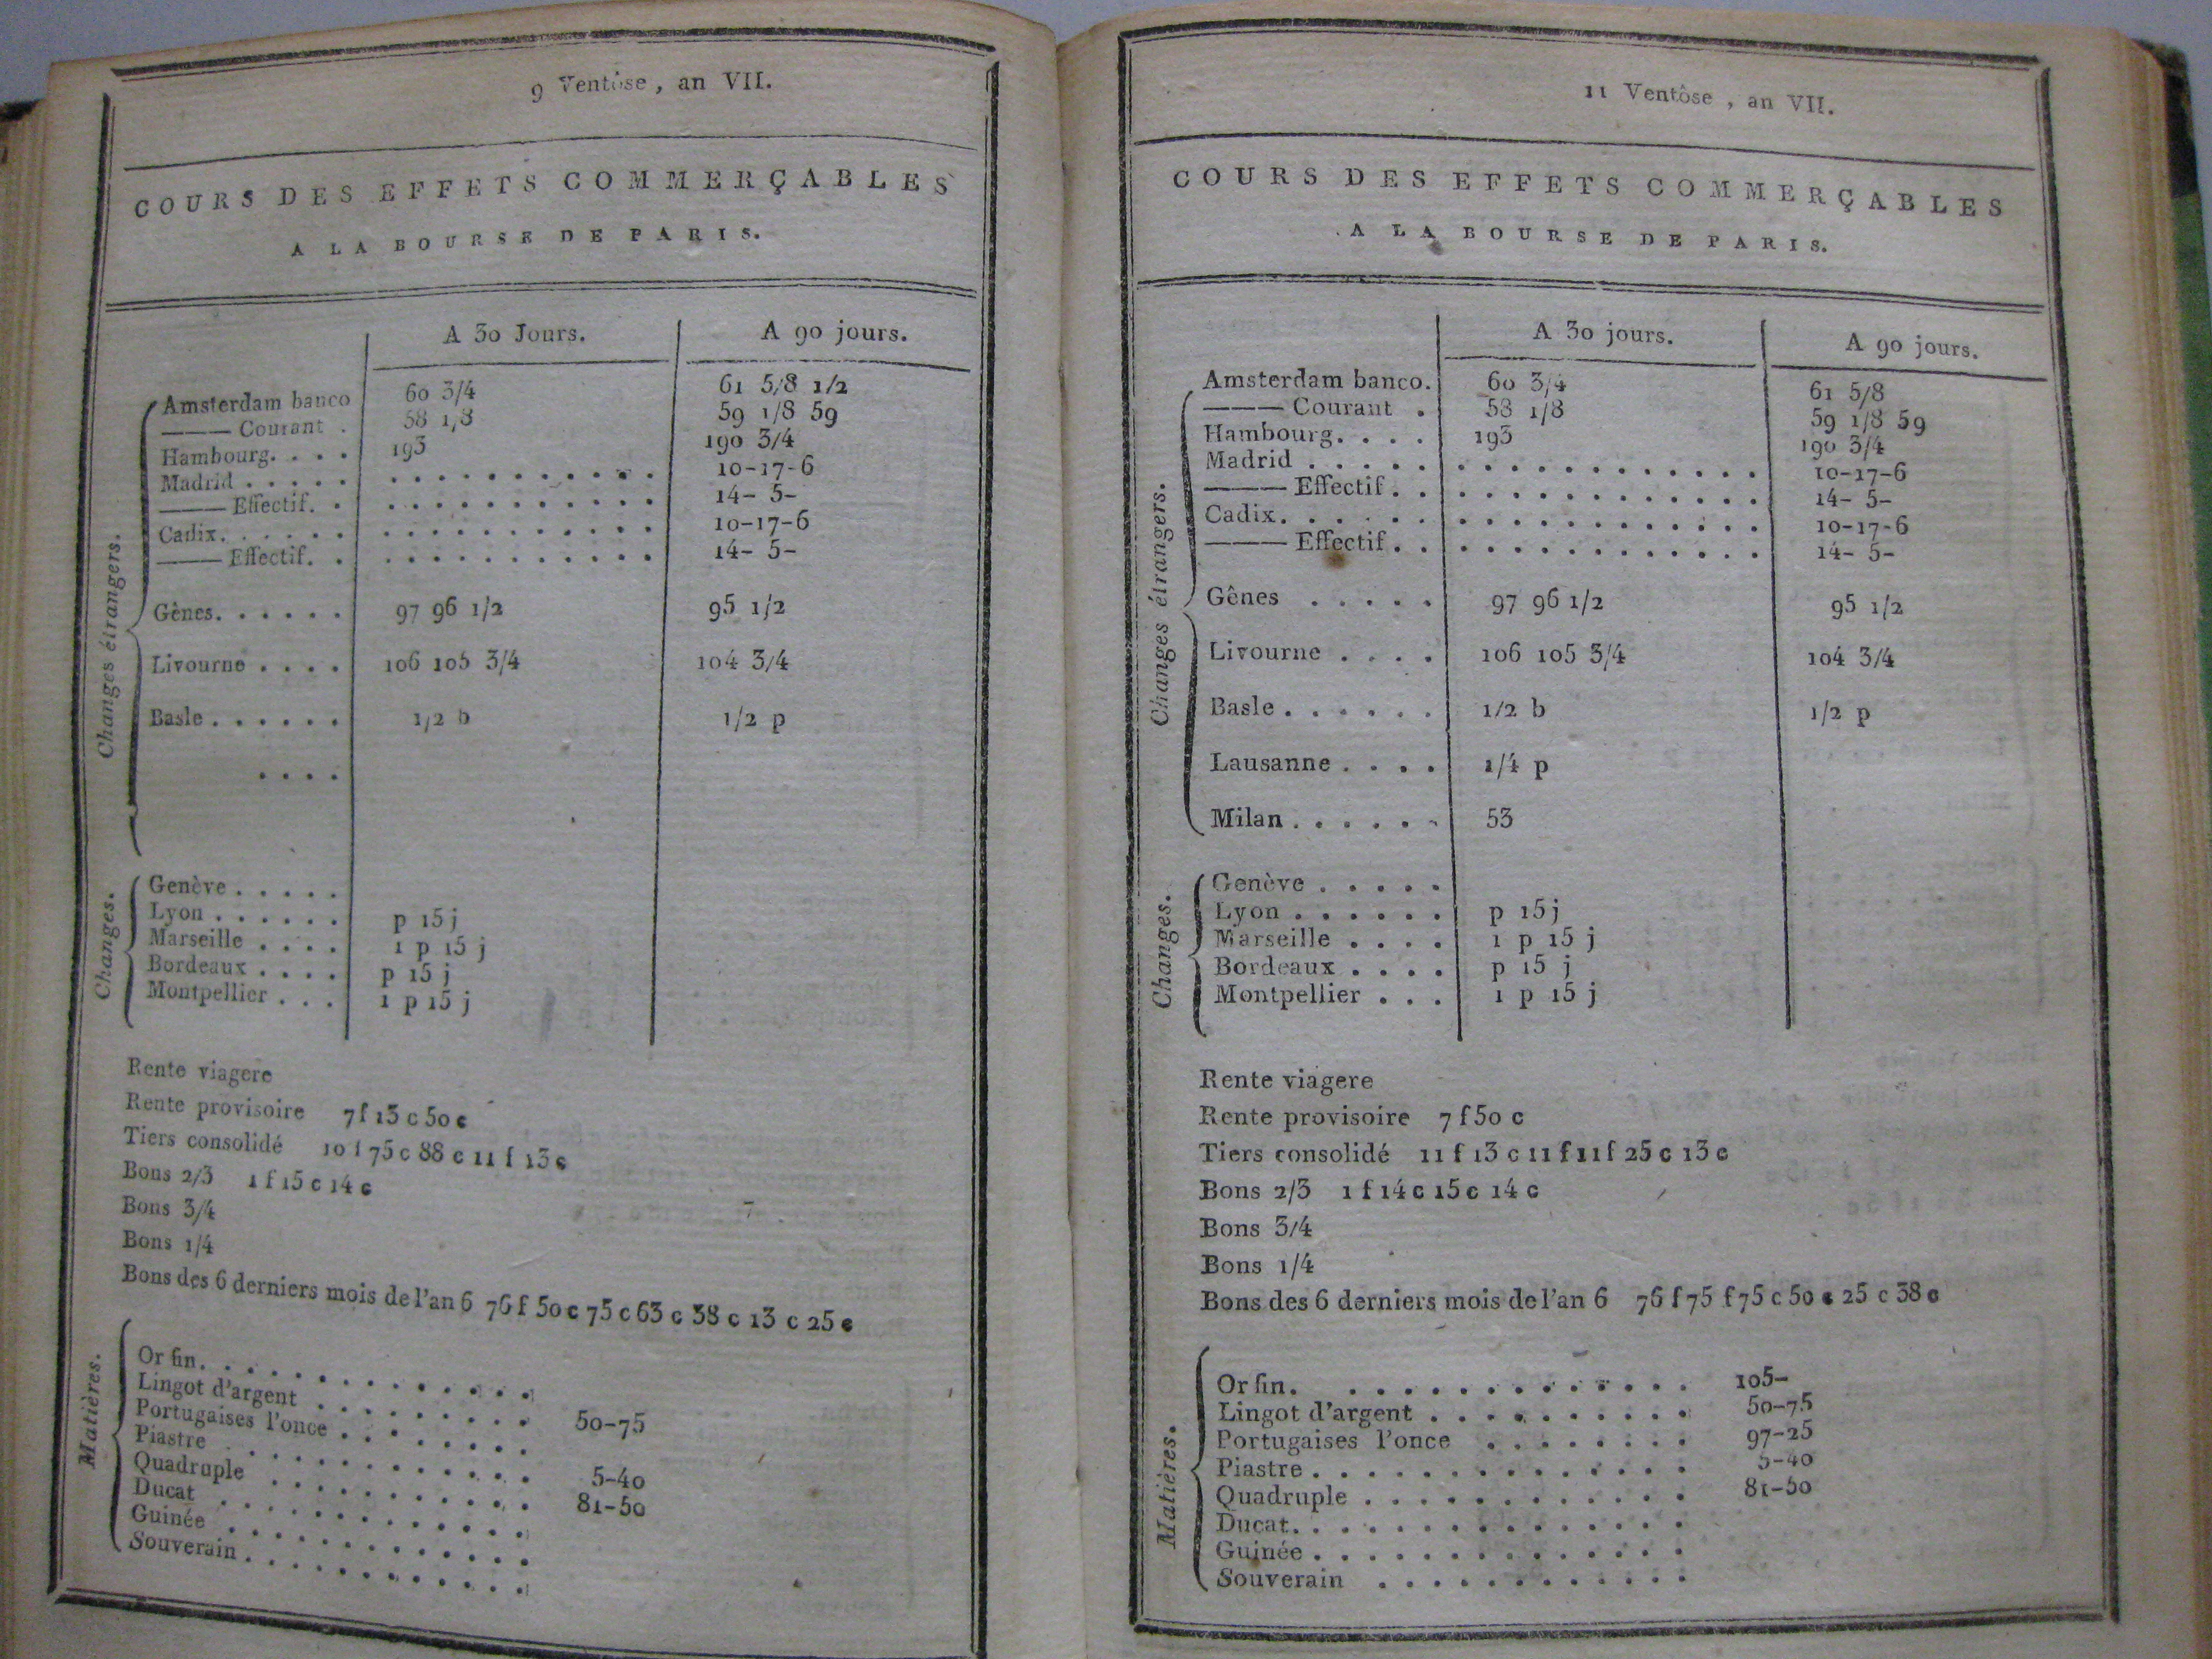 9 Ventôse, an VII.
COURS DES EFFETS COMMERÇABLES
A LA BOURSE DE PARIS.
A 30 Jours. A 90 jours.
Changes étrangers.
Amsterdam banco 60 3/4 61 5/8 1/2
——— Courant . 58 1/8 59 1/8 59
Hambourg. . . . 193 190 3/4
Madrid . . . . . . . . . . . . . . . . 10-17-6
——— Effectif. . . . . . . . . . . . . 14- 5-
Cadix. . . . . . . . . . . . . . . . . 10-17-6
——— Effectif. . . . . . . . . . . . . 14- 5-
Gênes. . . . . . 97 96 1/2 95 1/2
Livourne . . . . 106 105 3/4 104 3/4
Basle . . . . . . 1/2 b 1/2 p
. . . .
Changes.
Genève . . . . .
Lyon . . . . . . p 15 j
Marseille . . . . 1 p 15 j
Bordeaux . . . . p 15 j
Montpellier . . . 1 p 15 j
Rente viagere
Rente provisoire 7 f 13 c 50 c
Tiers consolidé 10 f 75 c 88 c 11 f 13 c
Bons 2/3 1 f 15 c 14 c
Bons 3/4
Bons 1/4
Bons des 6 derniers mois de l'an 6 76 f 50 c 75 c 63 c 38 c 13 c 25 c
Matières.
Or fin. . . . . . . . . . . . .
Lingot d'argent . . . . . . . . . 50-75
Portugaises l'once . . . . . . . .
Piastre . . . . . . . . . . . . 5-40
Quadruple . . . . . . . . . . . 81-50
Ducat . . . . . . . . . . . . .
Guinée . . . . . . . . . . . . .
Souverain . . . . . . . . . . . .
11 Ventôse, an VII.
COURS DES EFFETS COMMERÇABLES
A LA BOURSE DE PARIS.
A 30 jours. A 90 jours.
Changes étrangers.
Amsterdam banco. 60 3/4 61 5/8
——— Courant . 58 1/8 59 1/8 59
Hambourg. . . . 193 190 3/4
Madrid . . . . . . . . . . . . . . . . 10-17-6
——— Effectif. . . . . . . . . . . . . 14- 5-
Cadix. . . . . . . . . . . . . . . . . 10-17-6
——— Effectif. . . . . . . . . . . . . 14- 5-
Gênes . . . . . 97 96 1/2 95 1/2
Livourne . . . . 106 105 3/4 104 3/4
Basle . . . . . . 1/2 b 1/2 p
Lausanne . . . . 1/4 p
Milan . . . . . . 53
Changes.
Genève . . . . .
Lyon . . . . . . p 15 j
Marseille . . . . 1 p 15 j
Bordeaux . . . . p 15 j
Montpellier . . . 1 p 15 j
Rente viagere
Rente provisoire 7 f 50 c
Tiers consolidé 11 f 13 c 11 f 11 f 25 c 13 c
Bons 2/3 1 f 14 c 15 c 14 c
Bons 3/4
Bons 1/4
Bons des 6 derniers mois de l'an 6 76 f 75 f 75 c 50 c 25 c 38 c
Matières.
Or fin. . . . . . . . . . . . . 105-
Lingot d'argent . . . . . . . . . . 50-75
Portugaises l'once . . . . . . . . 97-25
Piastre . . . . . . . . . . . . . 5-40
Quadruple . . . . . . . . . . . . 81-50
Ducat. . . . . . . . . . . . . .
Guinée . . . . . . . . . . . . .
Souverain . . . . . . . . . . . .